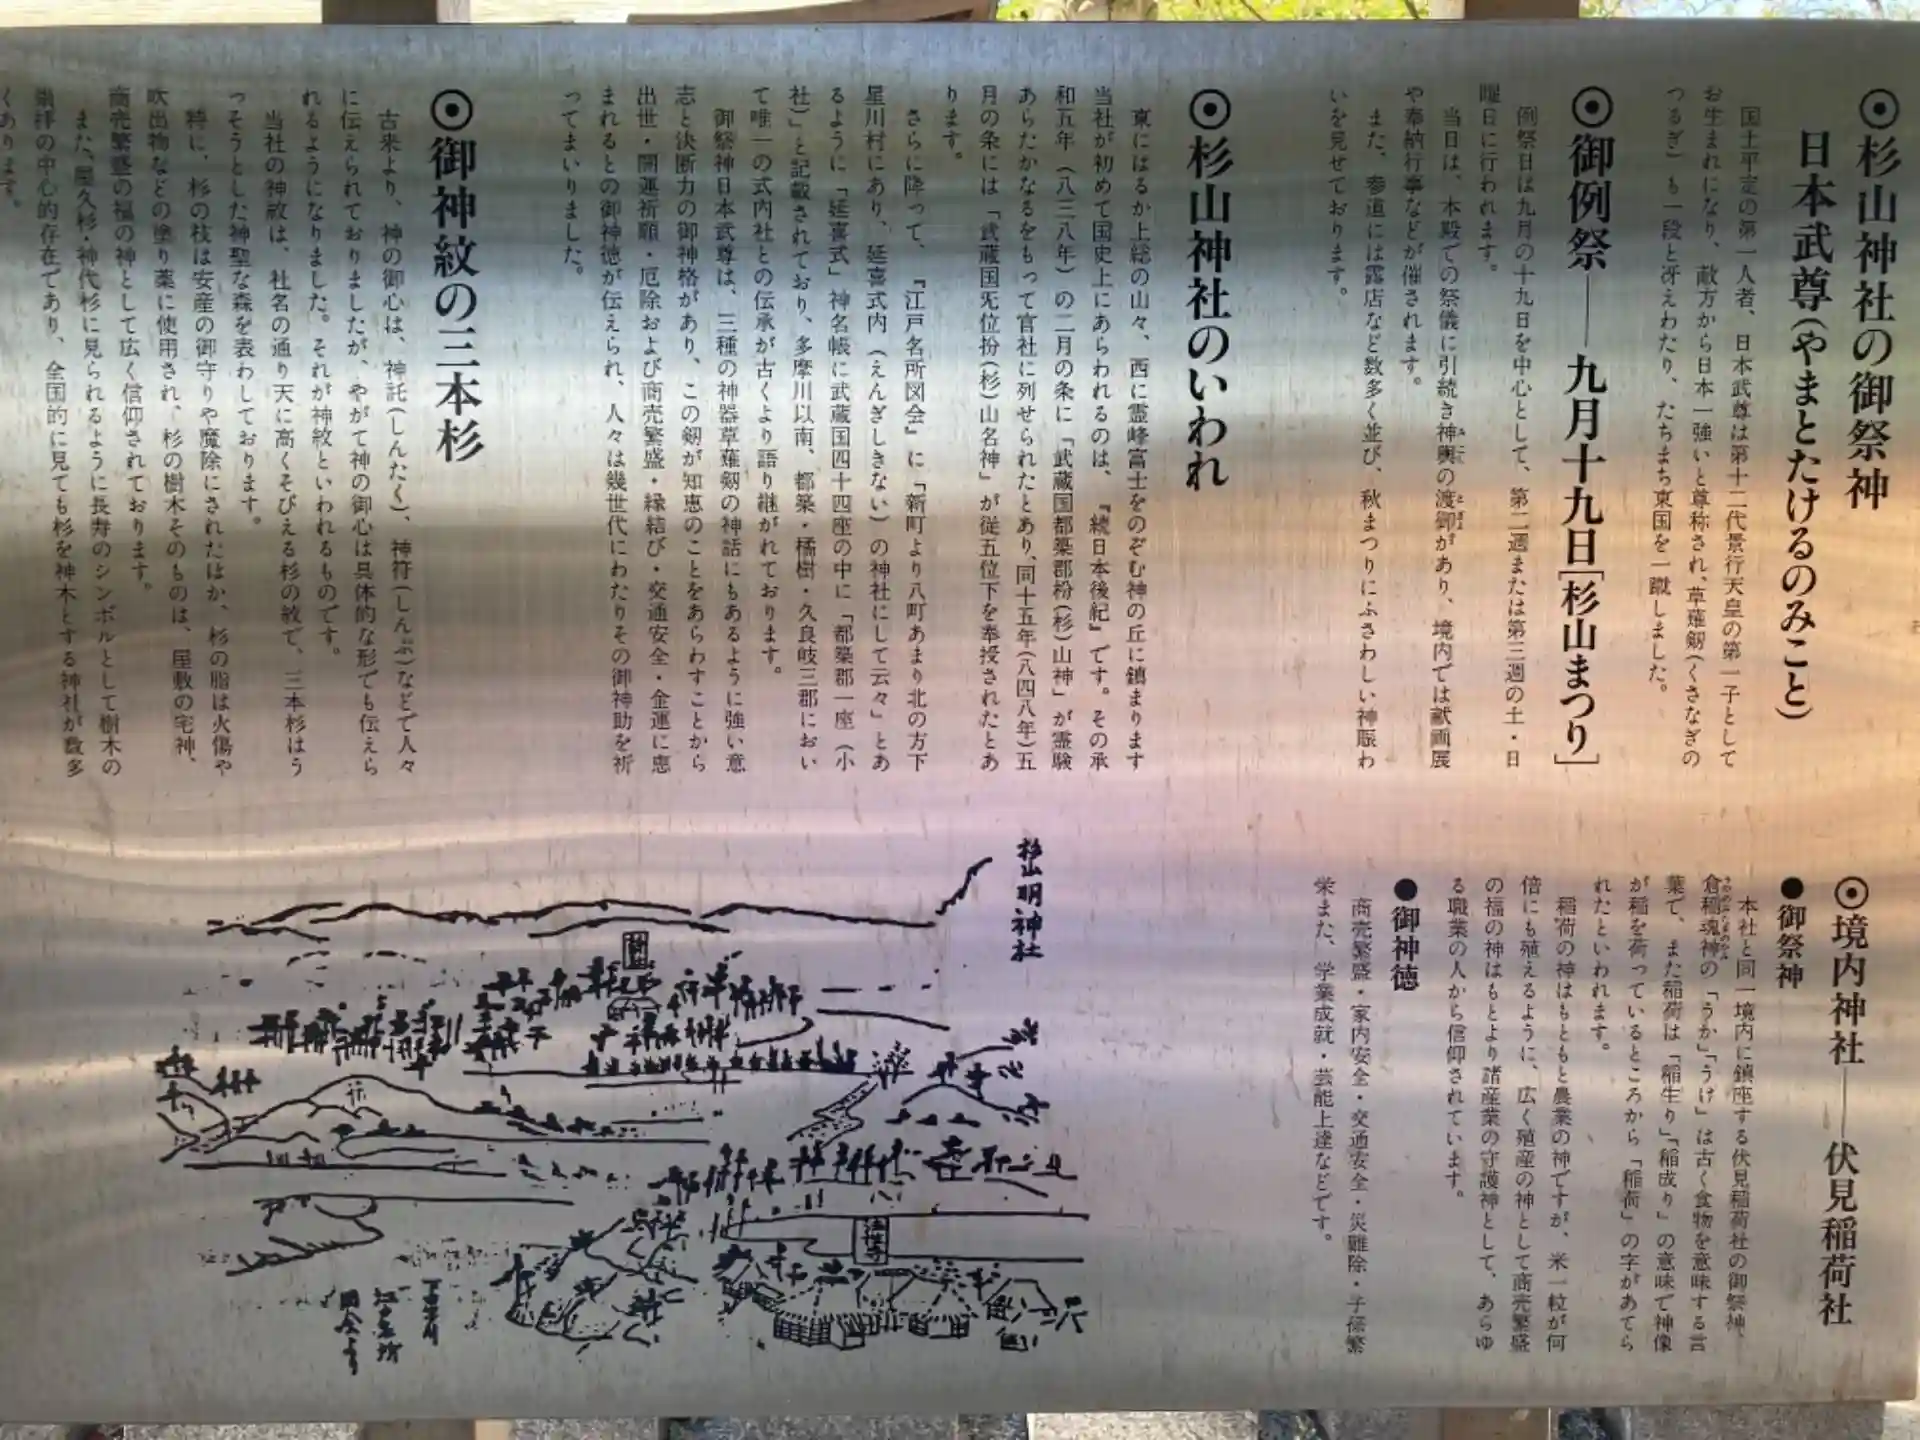 ◉杉山神社の御祭神
日本武尊(やまとたけるのみこと)
国土平定の第一人者、日本武尊は第十二代景行天皇の第一子として
お生まれになり、敵方から日本一強いと尊称され、草薙剱(くさなぎの
つるぎ)も一段と冴えわたり、たちまち東国を一蹴しました。
◉御例祭──九月十九日[杉山まつり]
例祭日は九月の十九日を中心として、第二週または第三週の土・日
曜日に行われます。
当日は、本殿での祭儀に引続き神輿の渡御があり、境内では献画展
や奉納行事などが催されます。
また、参道には露店など数多く並び、秋まつりにふさわしい神賑わ
いを見せております。
◉杉山神社のいわれ
東にはるか上総の山々、西に霊峰富士をのぞむ神の丘に鎮まります
当社が初めて国史上にあらわれるのは、『続日本後紀』です。その承
和五年(八三八年)の二月の条に「武蔵国都築郡枌(杉)山神」が霊験
あらたかなるをもって官社に列せられたとあり、同十五年(八四八年)五
月の条には「武蔵国旡位枌(杉)山名神」が従五位下を奉授されたとあ
ります。
さらに降って、『江戸名所図会』に「新町より八町あまり北の方下
星川村にあり、延喜式内(えんぎしきない)の神社にして云々」とあ
るように「延喜式」神名帳に武蔵国四十四座の中に「都築郡一座(小
社)」と記載されており、多摩川以南、都築・橘樹・久良岐三郡におい
て唯一の式内社との伝承が古くより語り継がれております。
御祭神日本武尊は、三種の神器草薙剱の神話にもあるように強い意
志と決断力の御神格があり、この剱が知恵のことをあらわすことから
出世・開運祈願・厄除および商売繁盛・縁結び・交通安全・金運に恵
まれるとの御神徳が伝えられ、人々は幾世代にわたりその御神助を祈
ってまいりました。
◉御神紋の三本杉
古来より、神の御心は、神託(しんたく)、神符(しんぷ)などで人々
に伝えられておりましたが、やがて神の御心は具体的な形でも伝えら
れるようになりました。それが神紋といわれるものです。
当社の神紋は、社名の通り天に高くそびえる杉の紋で、三本杉はう
っそうとした神聖な森を表わしております。
特に、杉の枝は安産の御守りや魔除にされたほか、杉の脂は火傷や
吹出物などの塗り薬に使用され、杉の樹木そのものは、屋敷の宅神、
商売繁盛の福の神として広く信仰されております。
また、屋久杉・神代杉に見られるように長寿のシンボルとして樹木の
崇拝の中心的存在であり、全国的に見ても杉を神木とする神社が数多
くあります。
◉境内神社──伏見稲荷社
●御祭神
本社と同一境内に鎮座する伏見稲荷社の御祭神、
倉稲魂神の「うか」「うけ」は古く食物を意味する言
葉で、また稲荷は「稲生り」「稲成り」の意味で神像
が稲を荷っているところから「稲荷」の字があてら
れたといわれます。
稲荷の神はもともと農業の神ですが、米一粒が何
倍にも殖えるように、広く殖産の神として商売繁盛
の福の神はもとより諸産業の守護神として、あらゆ
る職業の人から信仰されています。
●御神徳
商売繁盛・家内安全・交通安全・災難除・子孫繁
栄また、学業成就・芸能上達などです。
杉山明神社